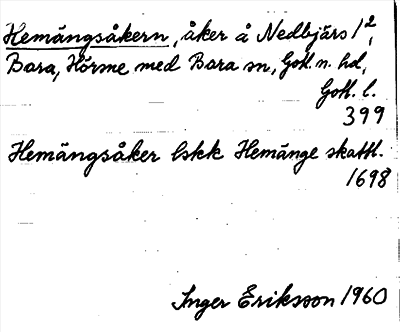 Hemängsåkern, åker å Nedbjärs 1²,
Bara, Hörsne med Bara sn, Gotl. n. hd,
Gotl. l.
399
Hemängsåker bskk Hemänge skattl.
1698
Inger Eriksson 1960